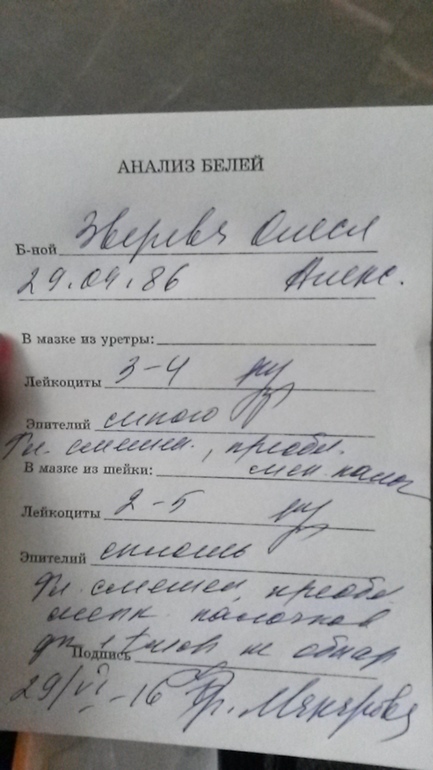 АНАЛИЗ БЕЛЕЙ
Б-ной Зверева Олеся
29.04.86 Алекс.
В мазке из уретры:
Лейкоциты 3-4
Эпителий много
Фл. смешан., преобл.
В мазке из шейки: мел. палоч
Лейкоциты 2-5
Эпителий сплошь
Фл. смешан, преобл
мелк. палочков
не обнар
Подпись
29/VI-16